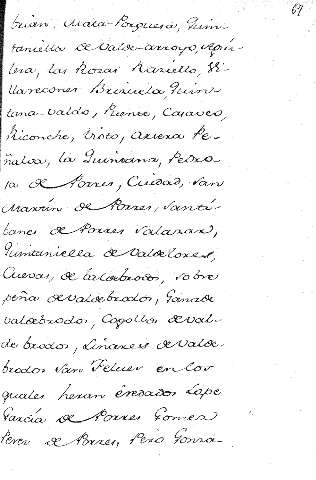 69
brian, Mata-Porquera, Quin-
tanilla de Valde-arroyo, Agui-
lera, las Rozas Raziello, Vi-
llarecones Brizuela, Quin-
tana-valdo, Puente,
Riconche, Visto, Pe-
ñalva, la Quintana, Pedro-
sa de Porres, Cuidad, San
Martin de Porres, Santi-
banes de Porres Salazar,
Quintaniella de Valdelores,
Cuevas, de Valdebrodos, sobre
peña de valdebrodos, de
valdebrodos, Cogollos de val-
de brodos, Linares de Valde-
brodos San Felues en los
quales heran eredados Lope
García de Porres Gomes
Peres de Porres, Pero Gonza-